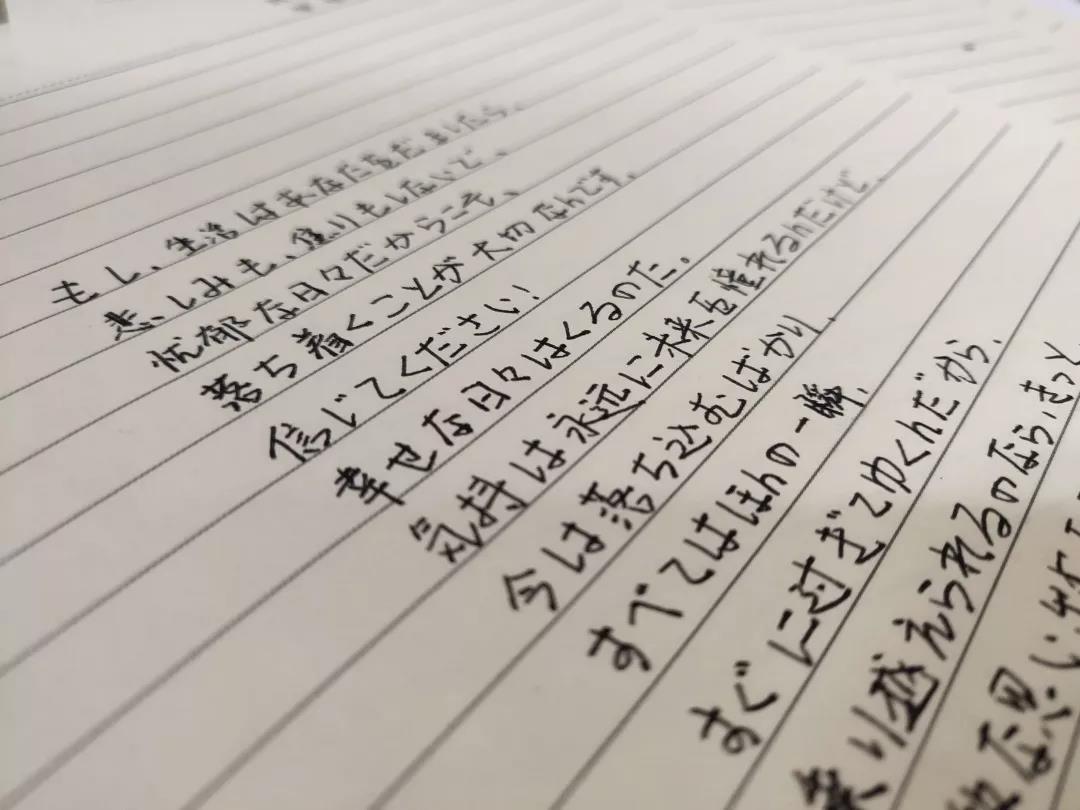 もし、生活はあなたをだましたら、
悲しみも、焦りもしないで、
忧郁な日々だからこそ、
落ち着くことが大切なんです。
信じてください!
幸せな日々はくるのた。
気持は永远に未来を憧れるんだけど、
今は落ち込むばかり、
すべてはほんの一瞬、
すぐに过ぎてゆくんだから、
乗り越えられるのなら、きっと
な思い出